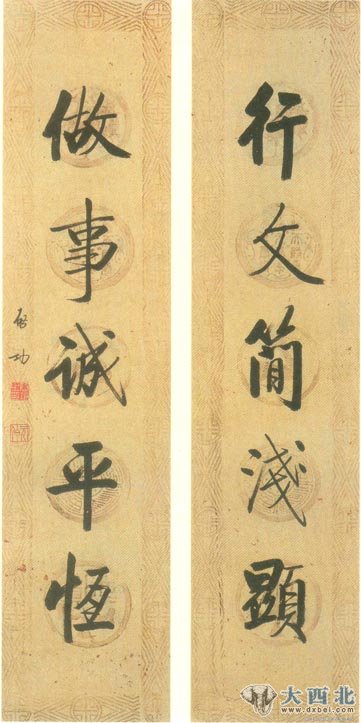 行文简淺顯
做事诚平恆
启功
大西北
www.dxbei.com